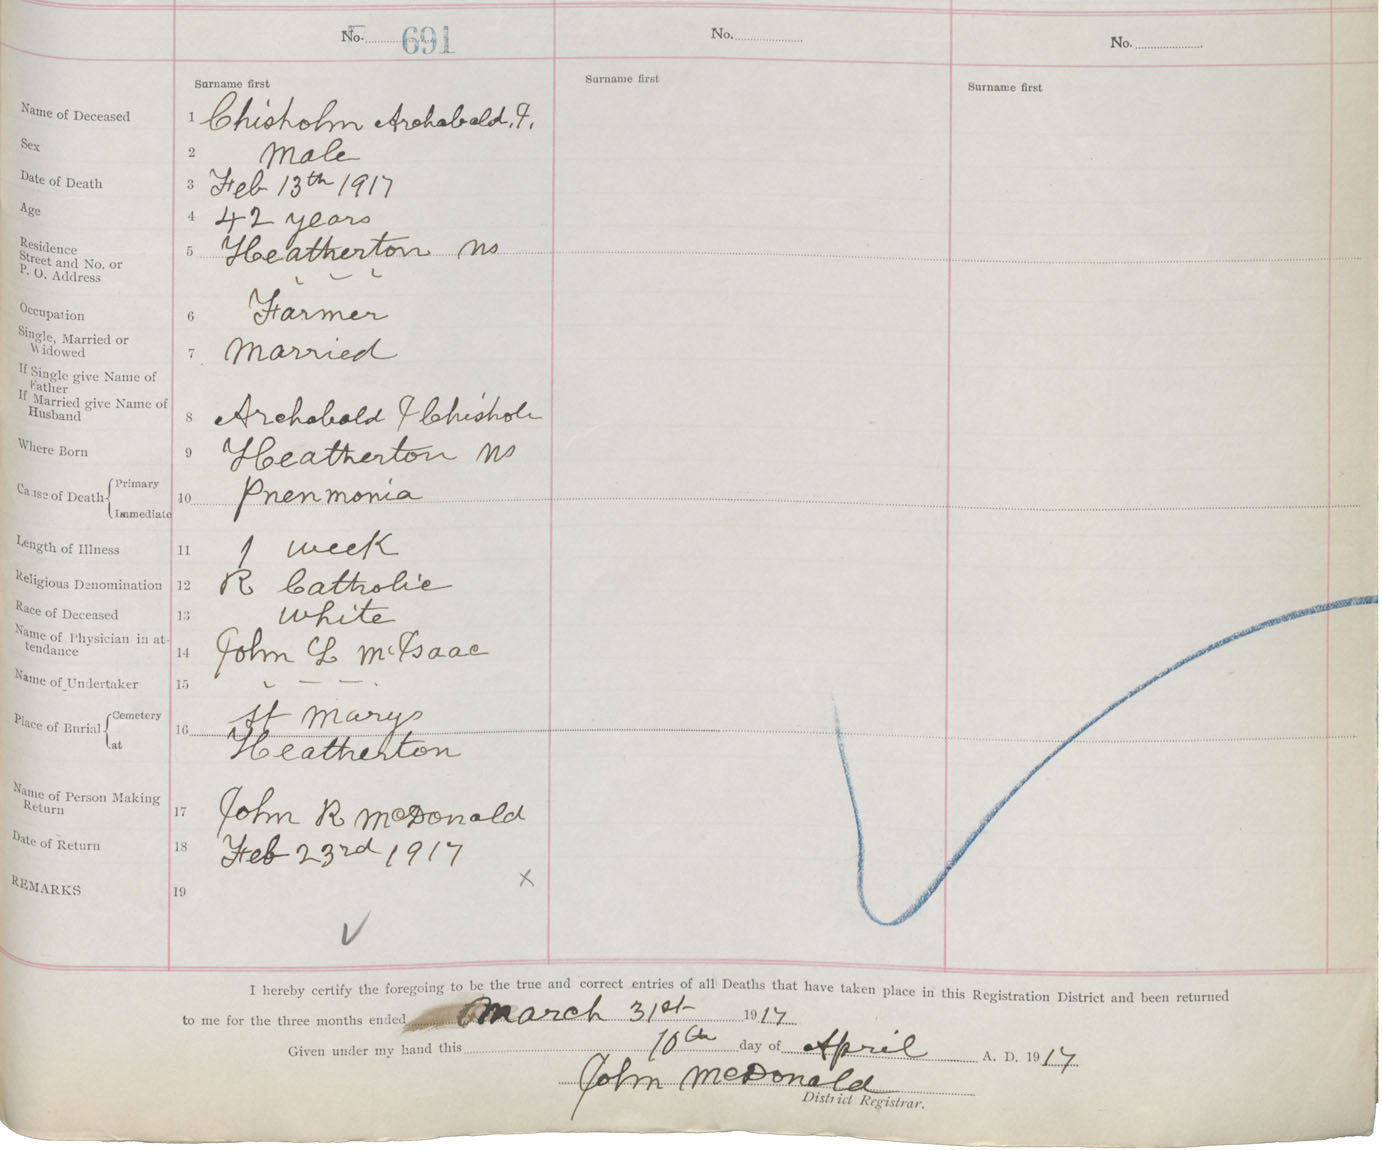 No. 691
No.
No.
Surname first
Surname first
Surname first
Name of Deceased 1 Chisholm Archabald. F.
Sex 2 Male
Date of Death 3 Feb 13th 1917
Age 4 42 years
Residence
Street and No. or
P. O. Address 5 Heatherton NS
Occupation 6 Farmer
Single, Married or
Widowed 7 Married
If Single give Name of
Father
If Married give Name of
Husband 8 Archabald F Chishol
Where Born 9 Heatherton NS
Cause of Death { Primary
Immediate 10 Pnenmonia
Length of Illness 11 1 week
Religious Denomination 12 R Catholic
Race of Deceased 13 White
Name of Physician in at-
tendance 14 John L McIsaac
Name of Undertaker 15
Place of Burial { Cemetery
at 16 St Marys
Heatherton
Name of Person Making
Return 17 John R McDonald
Date of Return 18 Feb 23rd 1917
REMARKS 19
I hereby certify the foregoing to be the true and correct entries of all Deaths that have taken place in this Registration District and been returned
to me for the three months ended March 31st 1917
Given under my hand this 10th day of April A. D. 1917
John McDonald
District Registrar.